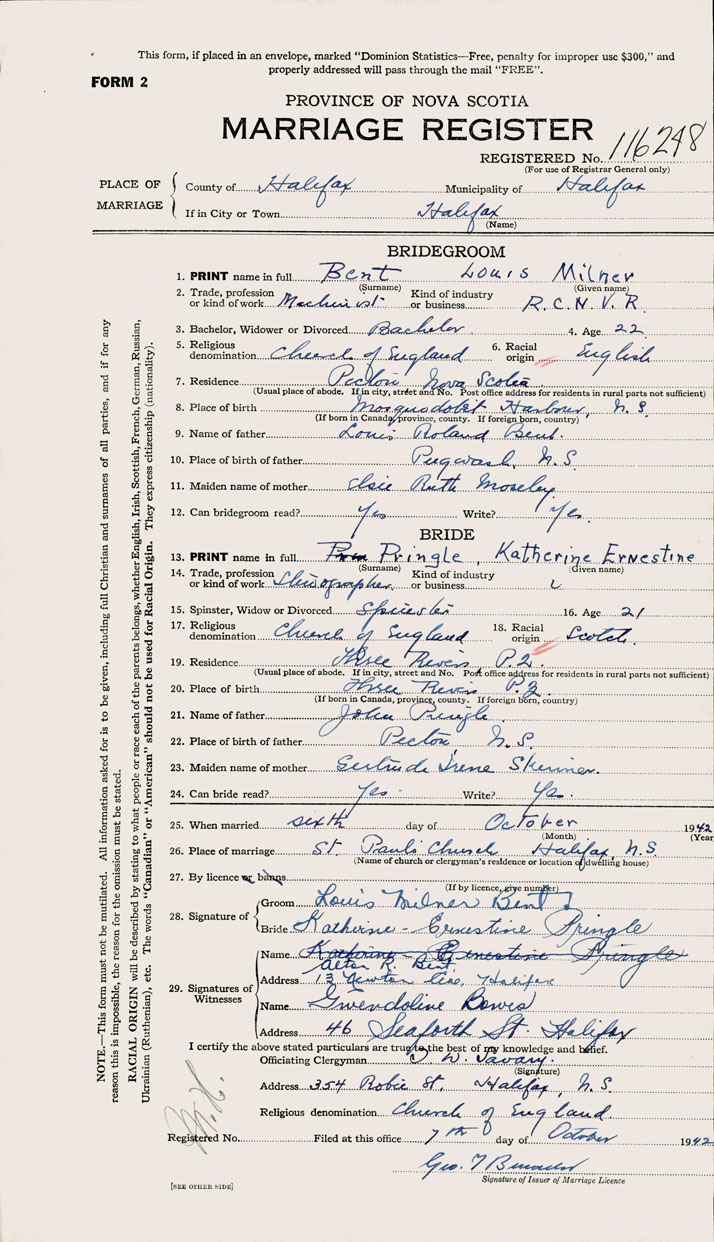 This form, if placed in an envelope, marked "Dominion Statistics—Free, penalty for improper use $300," and
properly addressed will pass through the mail "FREE".
FORM 2
PROVINCE OF NOVA SCOTIA
MARRIAGE REGISTER
REGISTERED No. 116248
(For use of Registrar General only)
PLACE OF MARRIAGE
County of Halifax Municipality of Halifax
If in City or Town Halifax
(Name)
BRIDEGROOM
1. PRINT name in full Bent Louis Milner
(Surname) (Given name)
2. Trade, profession or kind of work Machinist Kind of industry or business R.C.N.V.R.
3. Bachelor, Widower or Divorced Bachelor 4. Age 22
5. Religious denomination Church of England 6. Racial origin English
7. Residence Pictou Nova Scotia
(Usual place of abode. If in city, street and No. Post office address for residents in rural parts not sufficient)
8. Place of birth Mosquodobit Harbour, N.S.
(If born in Canada, province, county. If foreign born, country)
9. Name of father Louis Roland Bent.
10. Place of birth of father Pugwash, N.S.
11. Maiden name of mother Elsie Ruth Moseley
12. Can bridegroom read? Yes Write? Yes.
BRIDE
13. PRINT name in full Pringle, Katherine Ernestine
(Surname) (Given name)
14. Trade, profession or kind of work Stenographer Kind of industry or business
15. Spinster, Widow or Divorced Spinster 16. Age 21
17. Religious denomination Church of England 18. Racial origin Scotch
19. Residence Three Rivers P.Q.
(Usual place of abode. If in city, street and No. Post office address for residents in rural parts not sufficient)
20. Place of birth Three Rivers P.Q.
(If born in Canada, province, county. If foreign born, country)
21. Name of father John Pringle
22. Place of birth of father Pictou, N.S.
23. Maiden name of mother Gertrude Irene Skinner.
24. Can bride read? Yes Write? Yes.
25. When married sixth day of October 1942
(Month) (Year
26. Place of marriage St. Paul's Church Halifax, N.S.
(Name of church or clergyman's residence or location of dwelling house)
27. By licence or banns
(If by licence, give number)
28. Signature of
Groom Louis Milner Bent
Bride Katherine Ernestine Pringle
29. Signatures of Witnesses
Name Katherine Ernestine Pringle
R. Bent
Address 13 Newton Ave, Halifax
Name Gwendoline Bowes
Address 46 Seaforth St. Halifax
I certify the above stated particulars are true to the best of my knowledge and belief.
Officiating Clergyman W. Savary.
(Signature)
Address 354 Robie St., Halifax, N.S.
Religious denomination Church of England
Registered No. Filed at this office 7th day of October 1942
Geo. T
Signature of Issuer of Marriage Licence
[SEE OTHER SIDE]
NOTE.—This form must not be mutilated. All information asked for is to be given, including full Christian and surnames of all parties, and if for any
reason this is impossible, the reason for the omission must be stated.
RACIAL ORIGIN will be described by stating to what people or race each of the parents belongs, whether English, Irish, Scottish, French, German, Russian,
Ukrainian (Ruthenian), etc. The words "Canadian" or "American" should not be used for Racial Origin. They express citizenship (nationality).